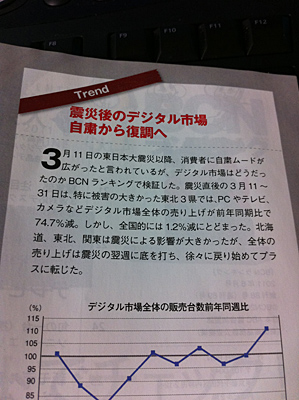 F8
F9
F10
F11
Trend
震災後のデジタル市場
自粛から復調へ
3月11日の東日本大震災以降、消費者に自粛ムードが
広がったと言われているが、デジタル市場はどうだっ
たのかBCNランキングで検証した。震災直後の3月11〜
31日は、特に被害の大きかった東北3県では、PCやテレビ、
カメラなどデジタル市場全体の売り上げが前年同期比で
74.7%減。しかし、全国的には1.2%減にとどまった。北海
道、東北、関東は震災による影響が大きかったが、全体の
売り上げは震災の翌週に底を打ち、徐々に戻り始めてプラ
スに転じた。
デジタル市場全体の販売台数前年同週比
(%)
115
110
105
100
95
90
85